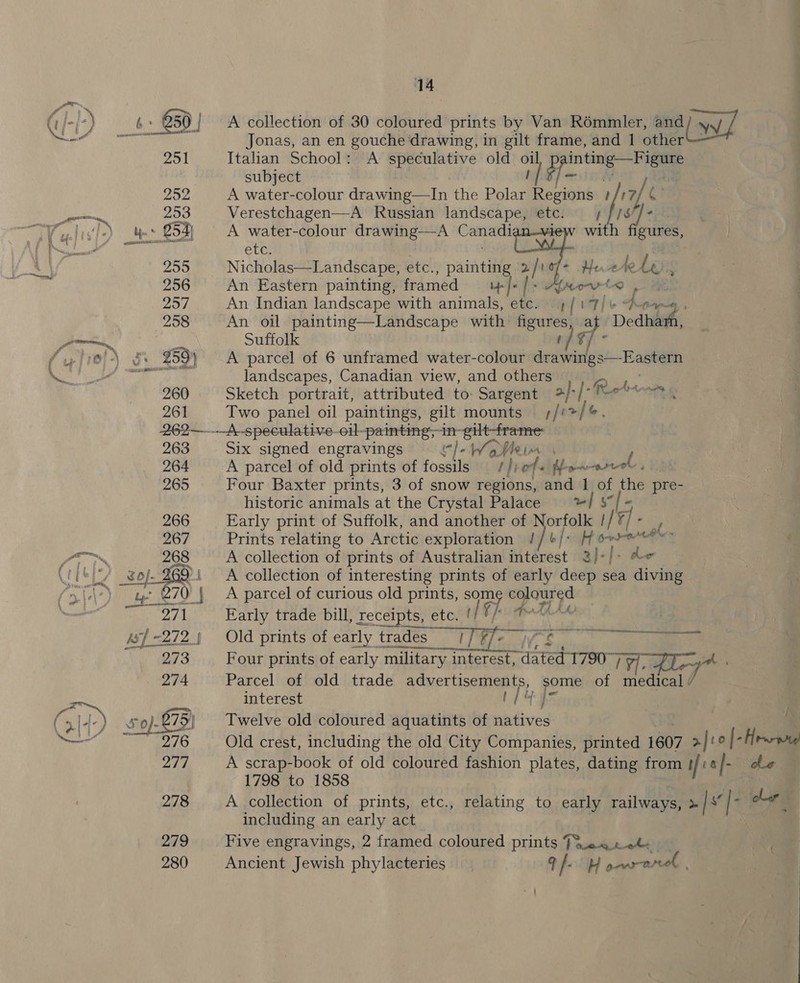 14
(1/-/-) 6 250 A collection of 30 coloured prints by Van Römmler, and
Jonas, an en gouche drawing, in gilt frame, and 1 other
251 Italian School: A speculative old oil painting—Figure
subject 1/8/-
252 A water-colour drawing—In the Polar Regions 1/17/6
253 Verestchagen—A Russian landscape, etc. 1/18/-
(4/18/-) 4 254 A water-colour drawing—A Canadian view with figures,
etc.
255 Nicholas—Landscape, etc., painting 2/10/-
256 An Eastern painting, framed 4/-/-
257 An Indian landscape with animals, etc.
258 An oil painting—Landscape with figures, at Dedham,
Suffolk 1/8/-
(4/10/-) 5 259 A parcel of 6 unframed water-colour drawings—Eastern
landscapes, Canadian view, and others
260 Sketch portrait, attributed to Sargent 2/-/-
261 Two panel oil paintings, gilt mounts 1/12/6.
262 A speculative oil painting, in gilt frame
263 Six signed engravings 5/-
264 A parcel of old prints of fossils 1/10/- Howard.
265 Four Baxter prints, 3 of snow regions, and 1 of the pre-
historic animals at the Crystal Palace 2/5/-
266 Early print of Suffolk, and another of Norfolk 1/8/-
267 Prints relating to Arctic exploration 1/6/- Howard
268 A collection of prints of Australian interest 3/-/- do
(1/6/-) 30/- 269 A collection of interesting prints of early deep sea diving
(2/4/-) 270 A parcel of curious old prints, some coloured
271 Early trade bill, receipts, etc. 1/8/-
15/- 272 Old prints of early trades 1/8/-
273 Four prints of early military interest, dated 1790
274 Parcel of old trade advertisements, some of medical
interest 1/4/-
(2/4/-) 50/- 275 Twelve old coloured aquatints of natives
276 Old crest, including the old City Companies, printed 1607 2/10/- Howard
277 A scrap-book of old coloured fashion plates, dating from 1/10/- do
1798 to 1858
278 A collection of prints, etc., relating to early railways, 2/5/- do
including an early act
279 Five engravings, 2 framed coloured prints
280 Ancient Jewish phylacteries 9/- Howard